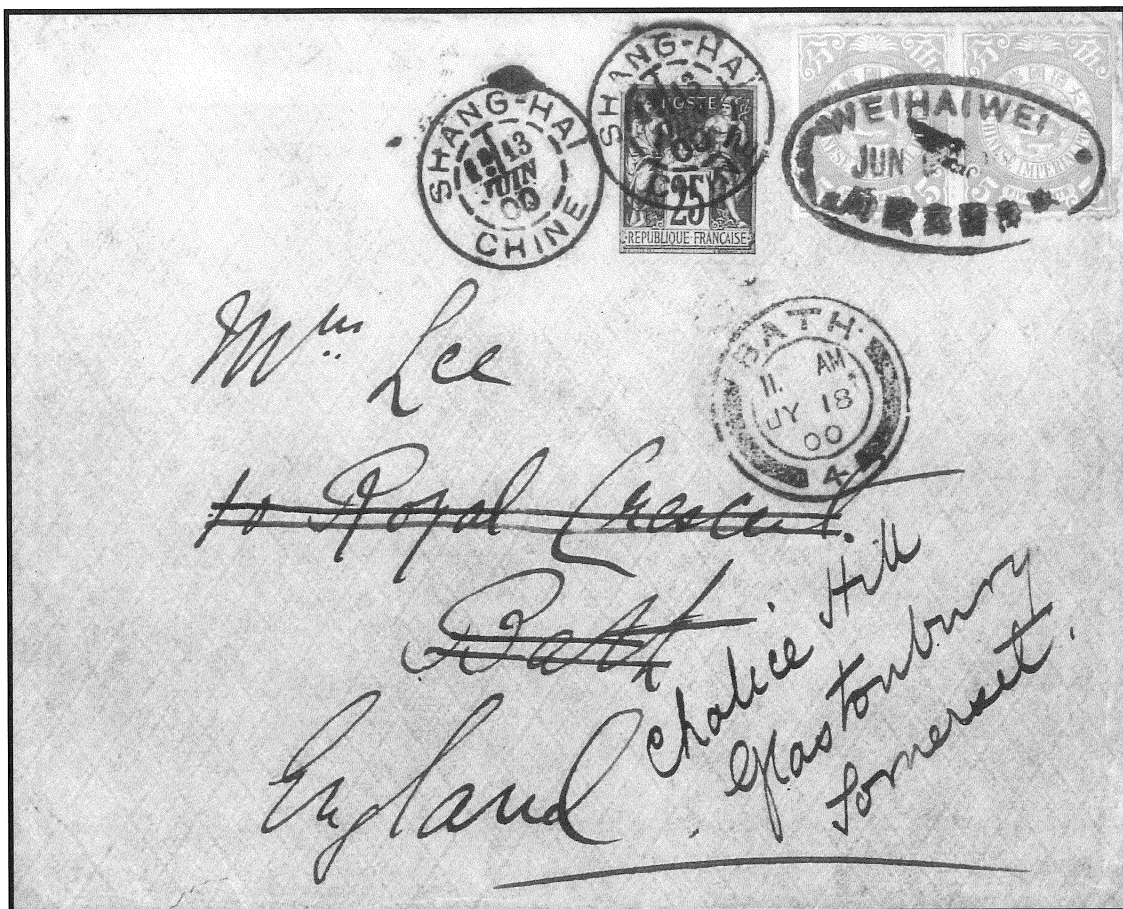 SHANG-HAI
13
JUIN
00
CHINE
SHANG-HAI
POSTE
25
REPUBLIQUE FRANCAISE
WEIHAIWEI
JUN
BATH
11. AM
JY 18
00
4
Mrs Lee
10 Royal Crescent.
Bath
England
Chalice Hill
Glastonbury
Somerset.